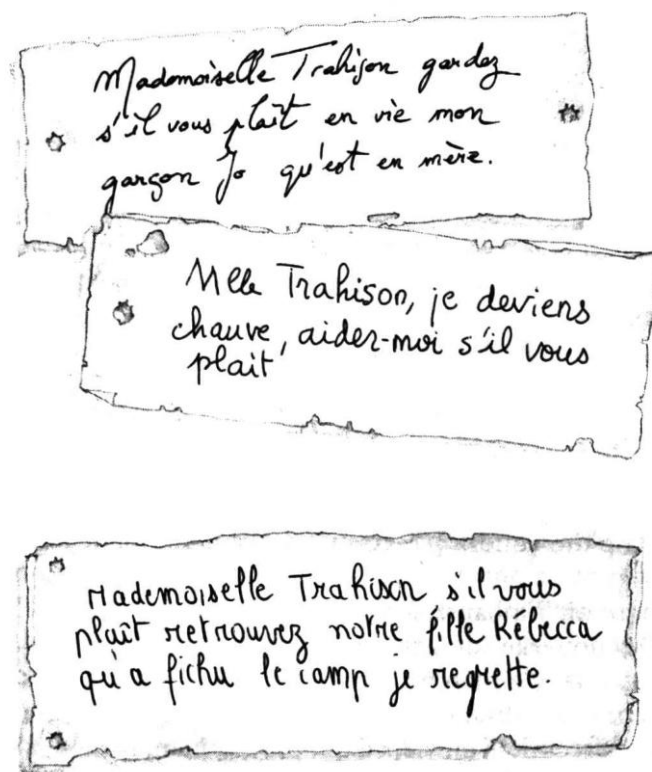 Mademoiselle Trahison gardez
s'il vous plaît en vie mon
garçon Jo qu'est en mère.
Mlle Trahison, je deviens
chauve, aidez-moi s'il vous
plait
Mademoiselle Trahison s'il vous
plaît retrouvez notre fille Rébecca
qu'a fichu le camp je regrette.